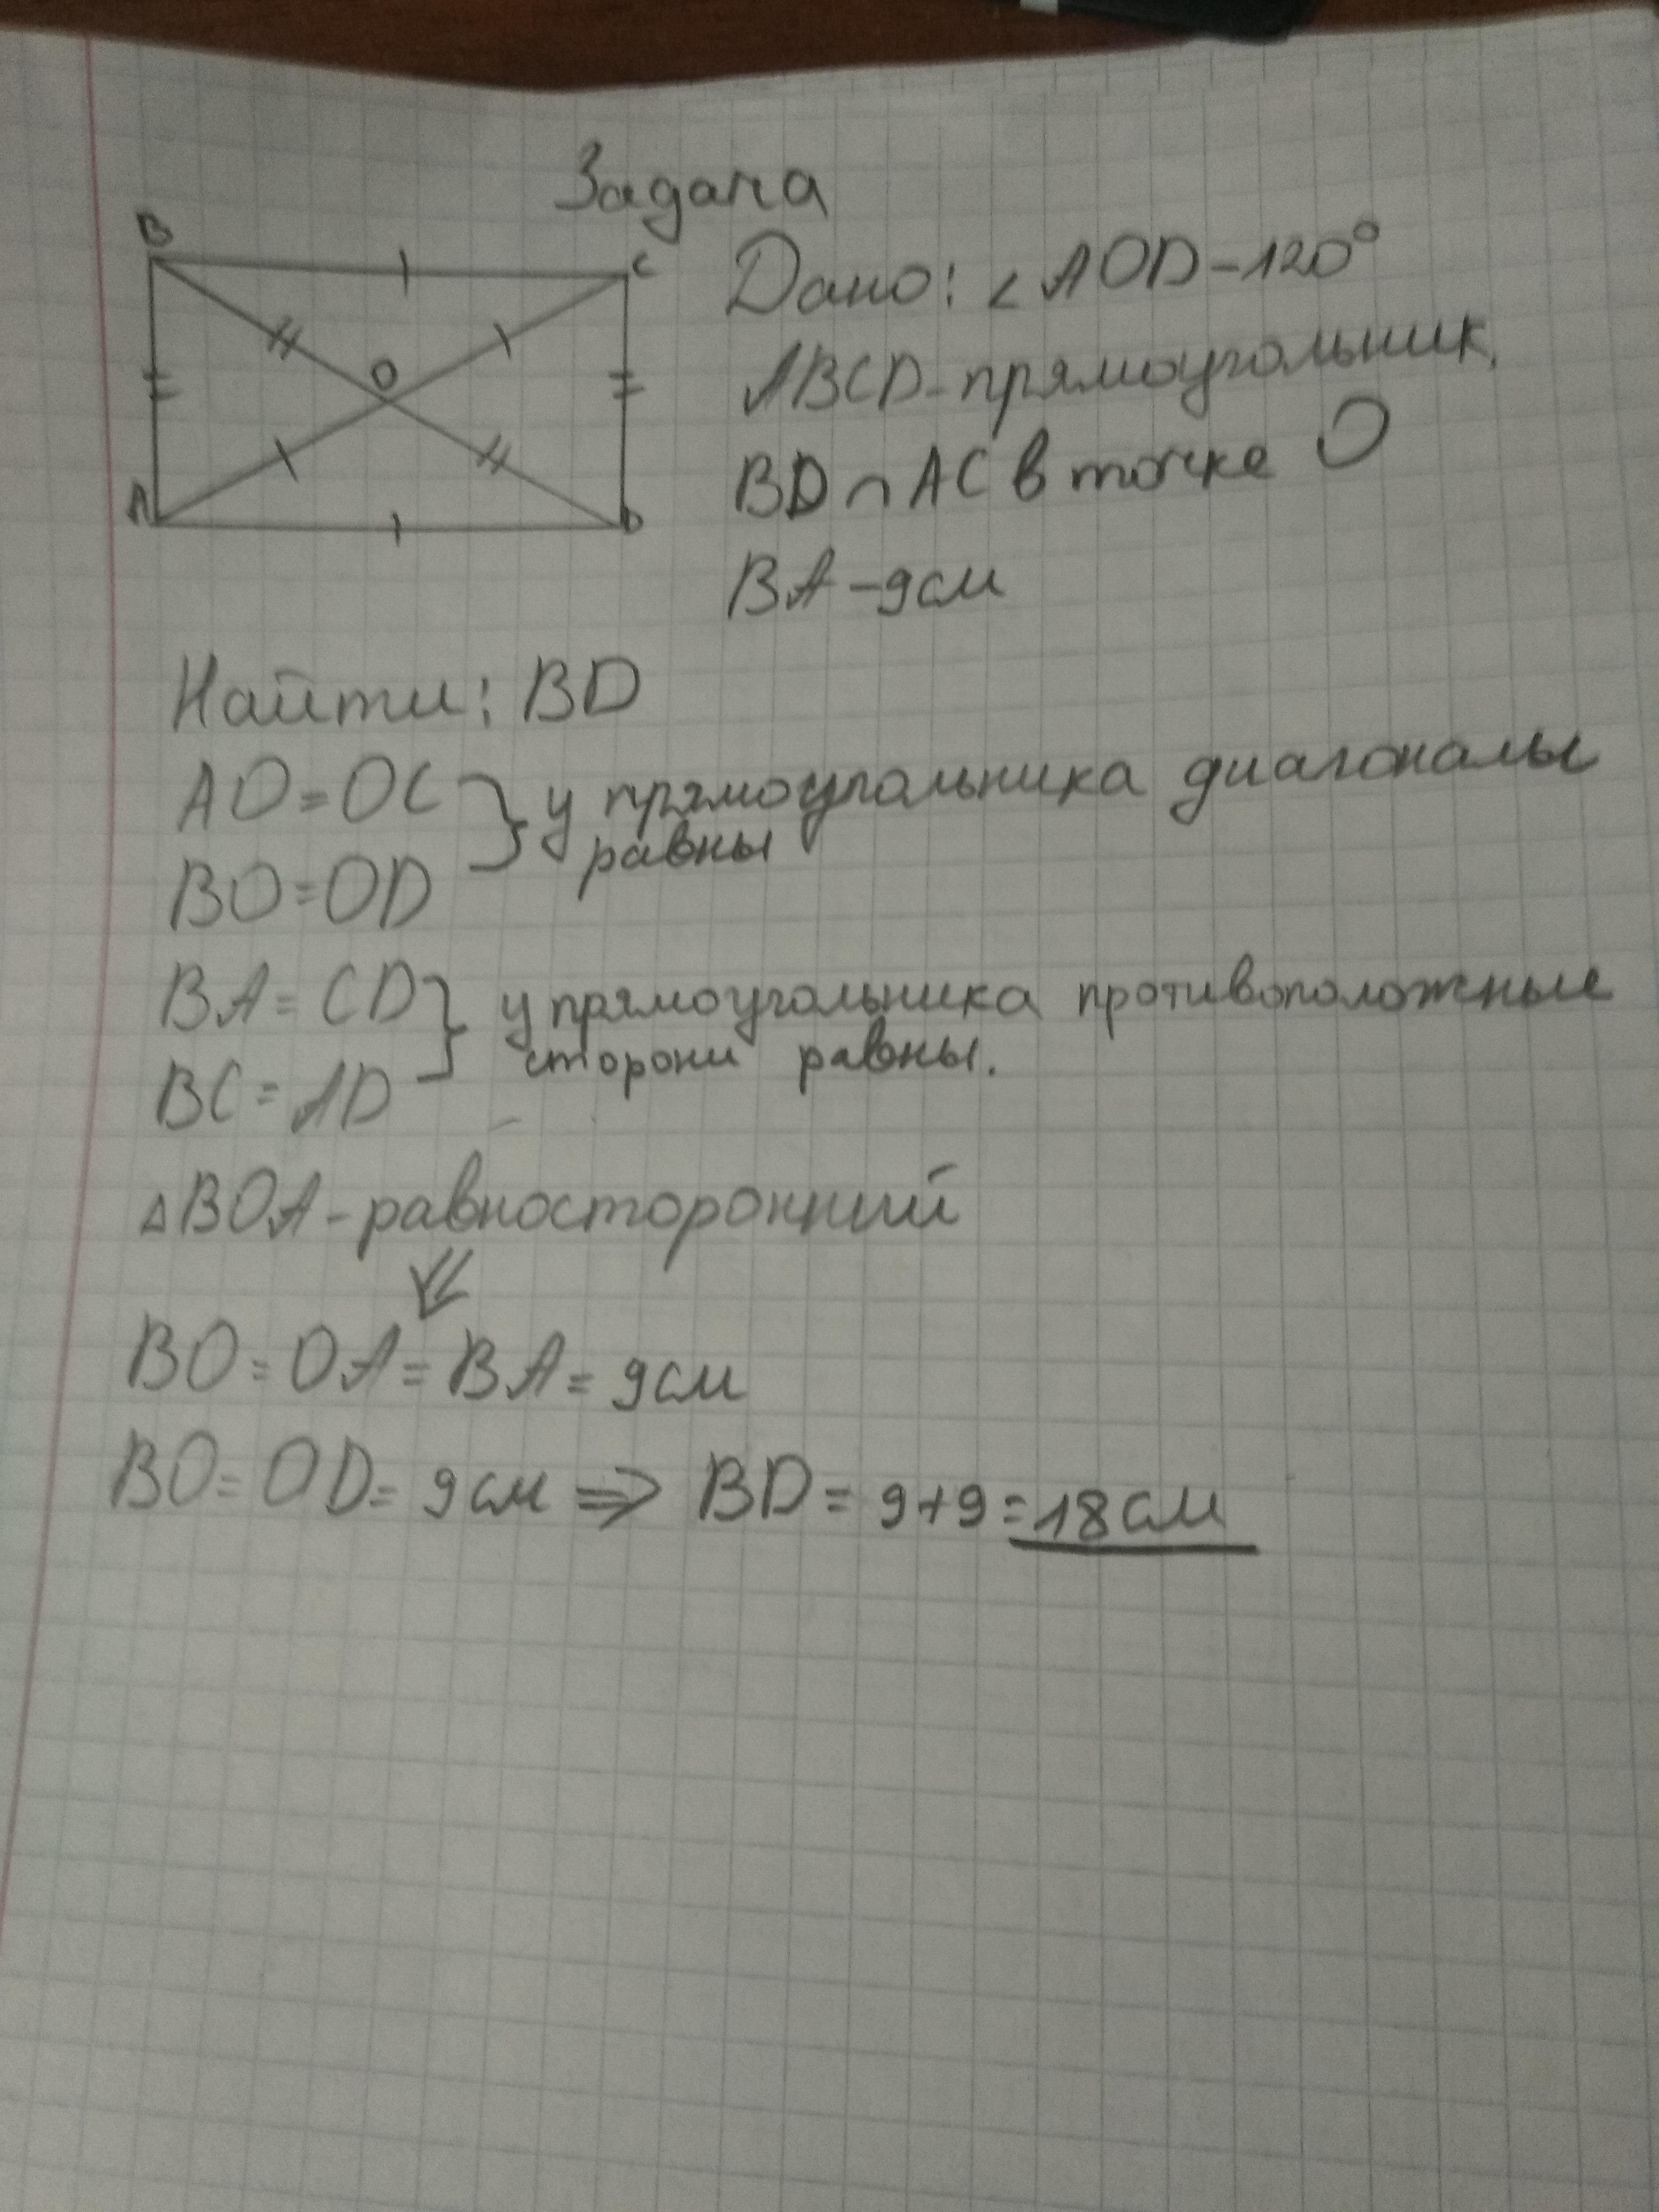 Задача
B
C
O
A
D
Дано: ∠AOD-120°
ABCD-прямоугольник,
BD∩AC в точке O
BA-9см
Найти: BD
AO=OC } у прямоугольника диагоналы
равны
BO=OD
BA=CD } у прямоугольника противоположные
сторони равны.
BC=AD
△BOA-равносторонний
⇓
BO=OA=BA=9см
BO=OD=9см ⇒ BD=9+9=18см